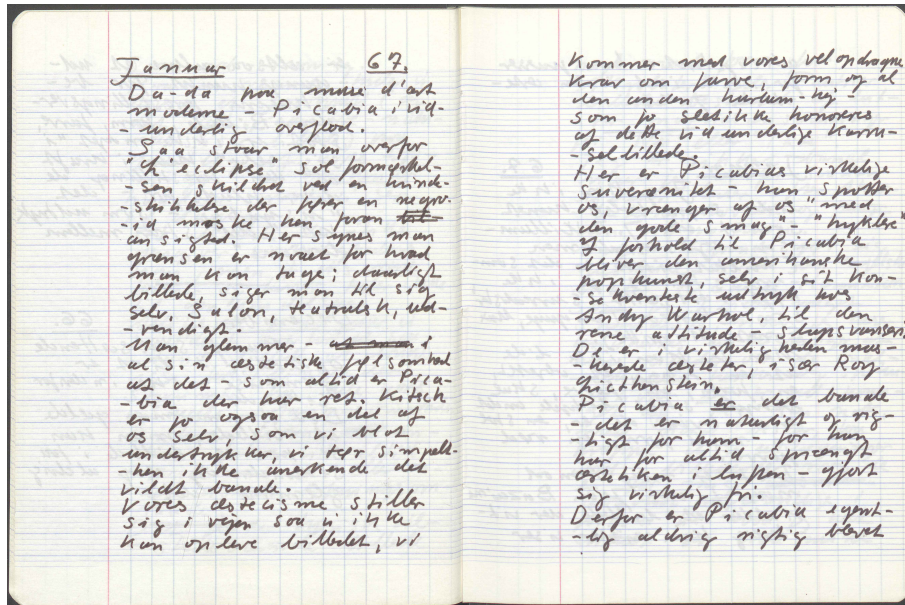 Januar 67.
Da-da paa musé d'art
moderne - Picabia i vid-
-underlig overflod.
Saa staar man overfor
"L'eclipse" sol formørkel-
-sen skildret ved en kvinde-
-skikkelse der fører en negro-
-id maske hen foran
ansigtet. Her synes man
grænsen er naaet for hvad
man kan tage; daarligt
billede, siger man til sig
selv, Salon, teatralsk, ud-
-vendigt.
Man glemmer - at man i
al sin æstetiske følsomhed
at det - som altid er Pica-
-bia der har ret. Kitsch
er jo ogsaa en del af
os selv, som vi blot
undertrykker, vi tør simpelt-
-hen ikke anerkende det
vildt banale.
Vores æstecisme stiller
sig i vejen saa vi ikke
kan opleve billedet, vi
kommer med vores velopdragne
krav om farve, form og al
den anden hurlum-hej-
som jo slet ikke honoreres
af dette vidunderlige karru-
-selbillede.
Her er Picabias virkelige
suverænitet - han spotter
os, vrænger af os "med
den gode smag" - "hyklere"
I forhold til Picabia
bliver den amerikanske
popkunst, selv i sit kon-
-sekventeste udtryk hos
Andy Warhol, til den
rene attitude -
De er i virkeligheden mas-
-kerede æsteter, især Roy
Lichtenstein.
Picabia er det banale
- det er naturligt og rig-
-tigt for ham - for han
har for altid sprængt
æstetiken i luften - gjort
sig virkelig fri.
Derfor er Picabia egent-
-lig aldrig rigtig blevet